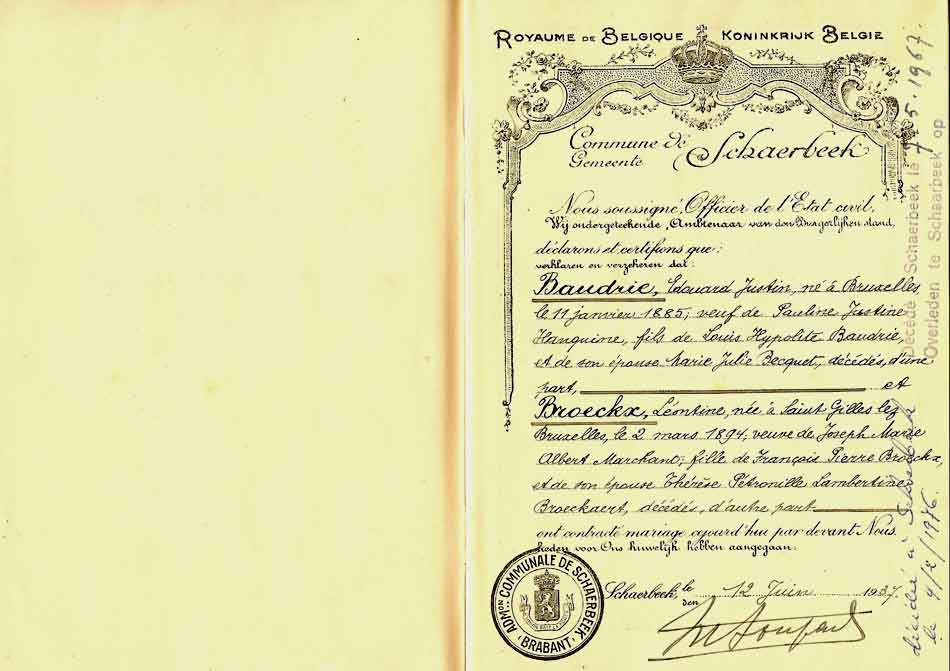 ROYAUME DE BELGIQUE KONINKRIJK BELGIE
Commune de
Gemeente
Schaerbeek
Nous soussigné, Officier de l'Etat civil,
Wij ondergeteekende, Ambtenaar van den Burgerlijken stand,
déclarons et certifions que:
verklaren en verzekeren dat:
Baudrie, Edouard Justin, né à Bruxelles,
le 11 janvier 1885, veuf de Pauline Justine
Hanquine, fils de Louis Hypolite Baudrie,
et de son épouse Marie Julie Becquet, décédés, d'une
part, et
Broeckx, Léontine, née à Saint Gilles lez
Bruxelles, le 2 mars 1894, veuve de Joseph Marie
Albert Marchant; fille de François Pierre Broeckx,
et de son épouse Thérèse Pétronille Lambertine
Broeckaert, décédés, d'autre part
ont contracté mariage aujourd'hui par devant Nous.
heden voor Ons huwelijk hebben aangegaan.
Schaerbeek, le
den
12 Juin 1937.
ADMON COMMUNALE DE SCHAERBEEK
(BRABANT)
Décédé à Schaerbeek le 7.5.1967.
Overleden te Schaarbeek op
décédée à Schaerbeek
le 4/2/1976.